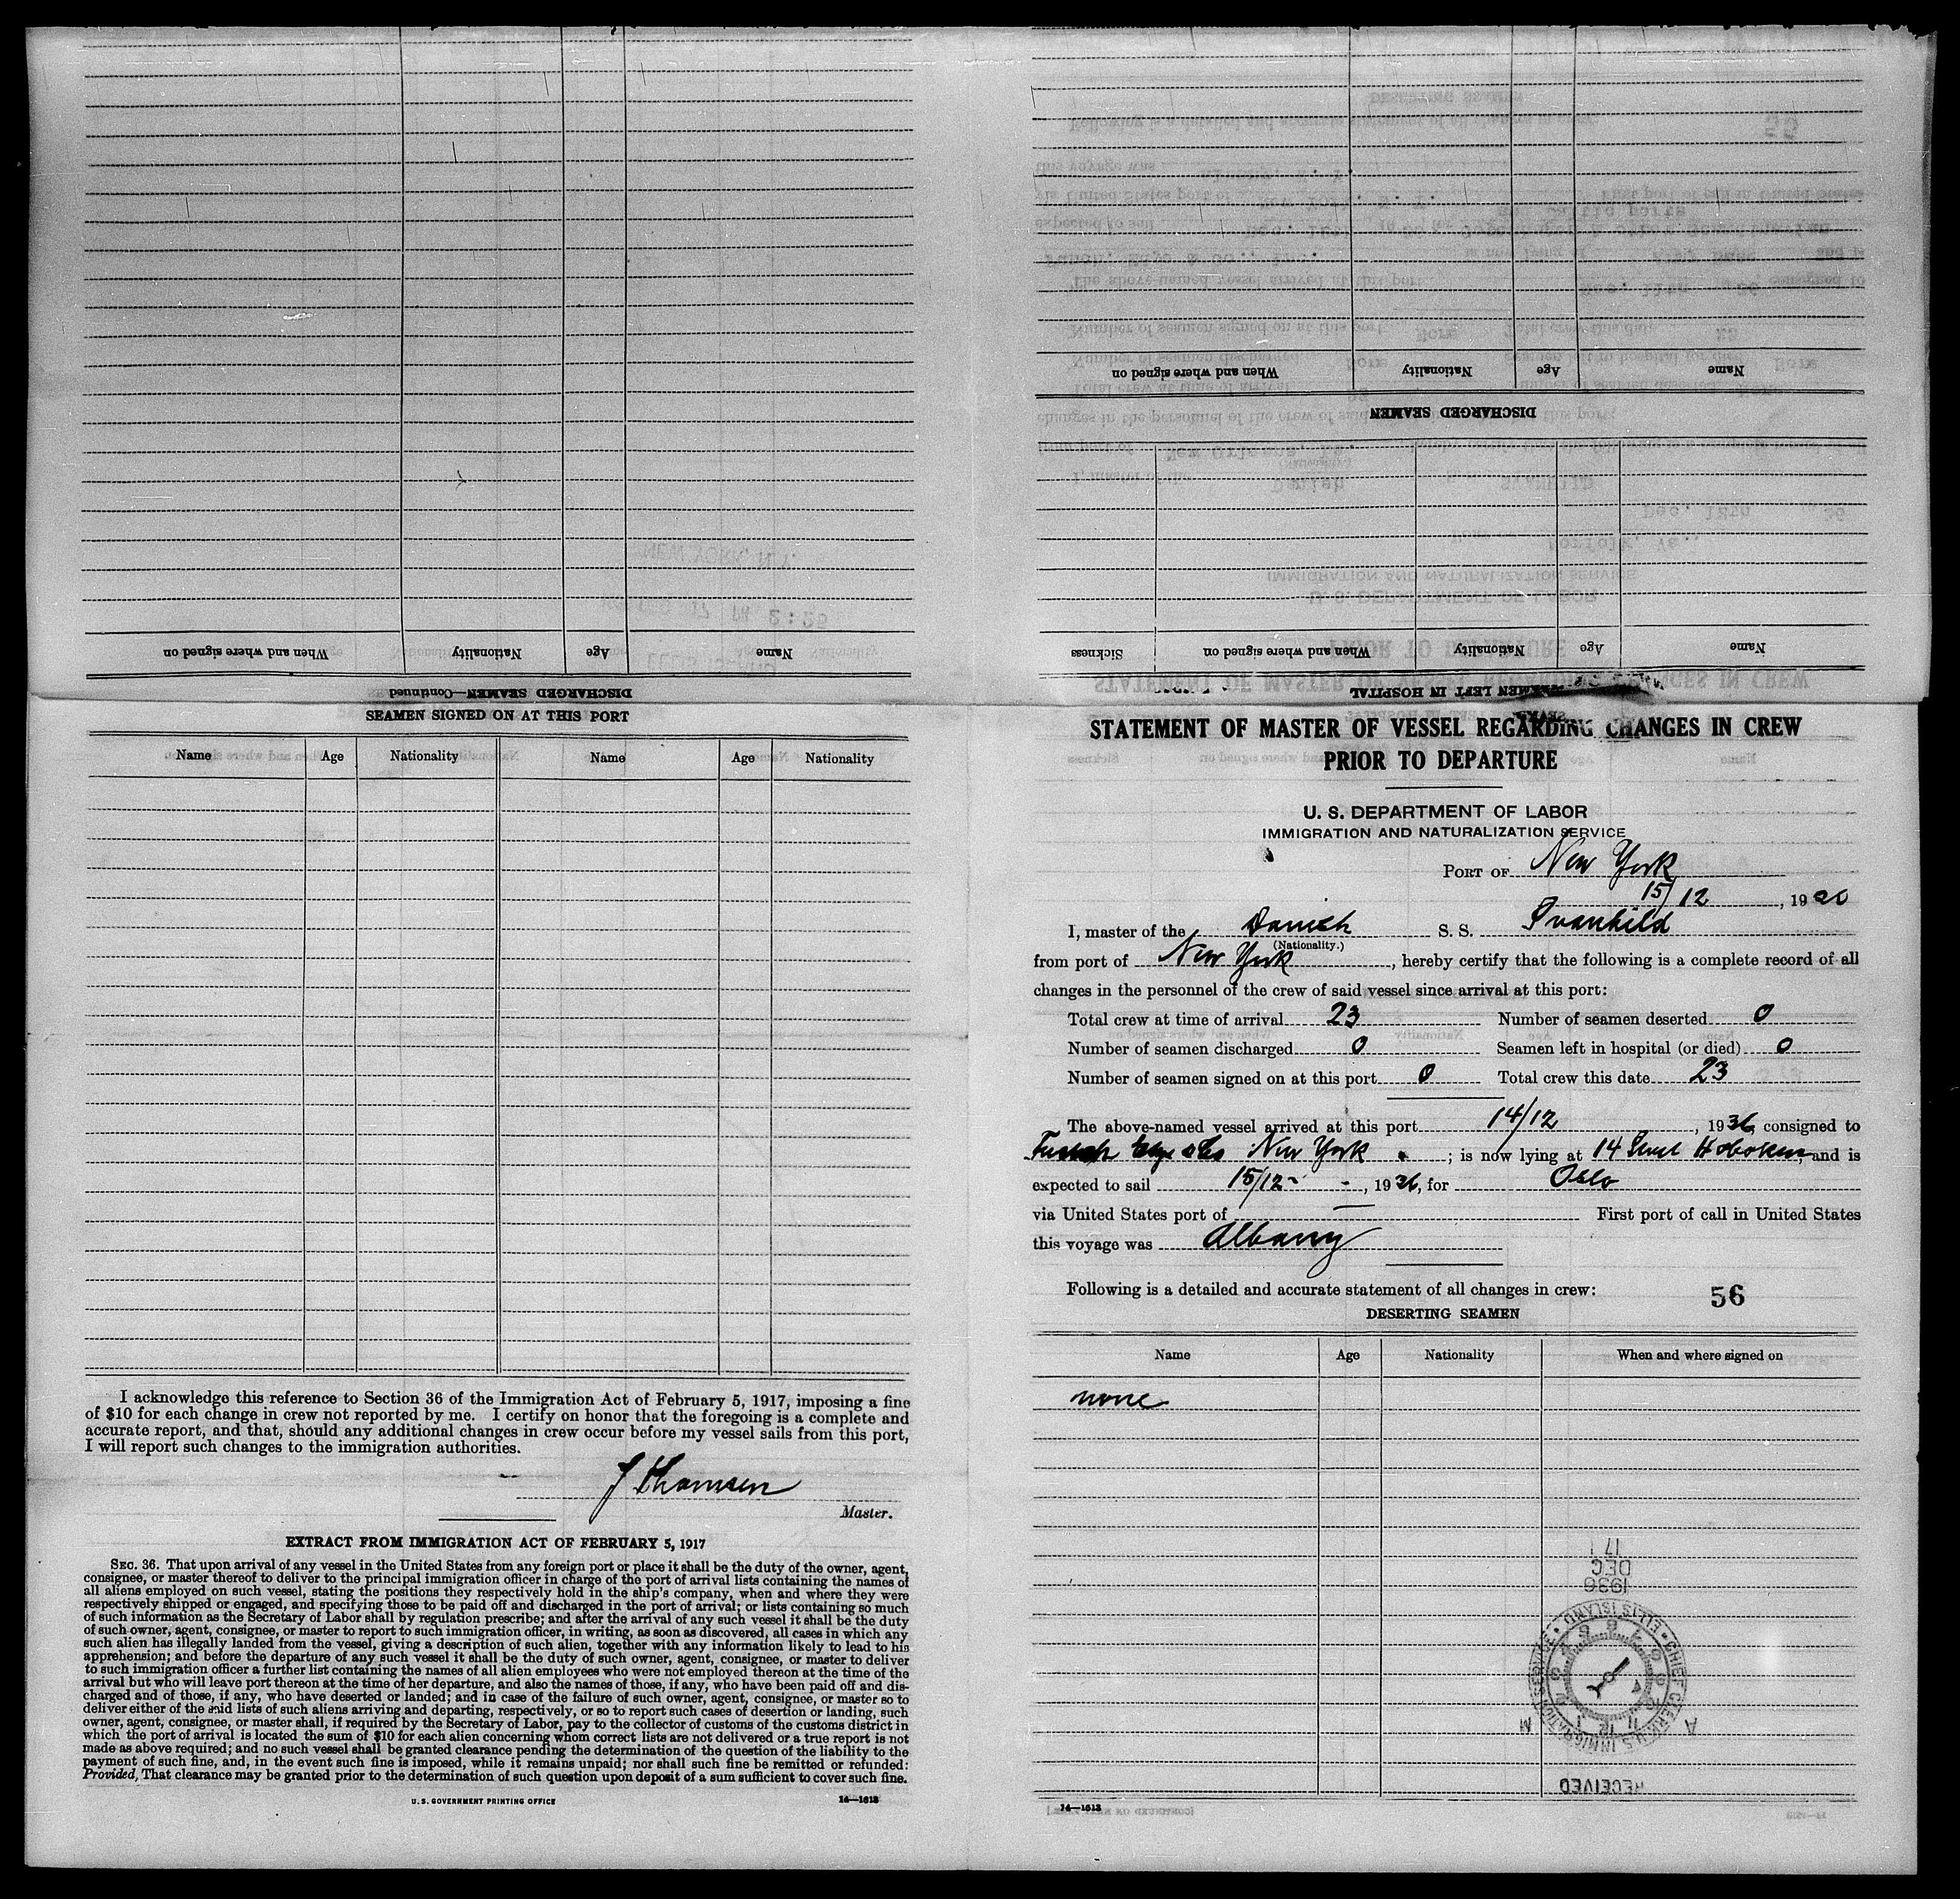 When and where signed on Nationality Age Name
DISCHARGED SEAMEN—Continued
When and where signed on Nationality Age Name
DISCHARGED SEAMEN
Sickness When and where signed on Nationality Age Name
SEAMEN LEFT IN HOSPITAL
SEAMEN SIGNED ON AT THIS PORT
Name Age Nationality Name Age Nationality
I acknowledge this reference to Section 36 of the Immigration Act of February 5, 1917, imposing a fine
of $10 for each change in crew not reported by me. I certify on honor that the foregoing is a complete and
accurate report, and that, should any additional changes in crew occur before my vessel sails from this port,
I will report such changes to the immigration authorities.
J Thomsen
Master.
EXTRACT FROM IMMIGRATION ACT OF FEBRUARY 5, 1917
SEC. 36. That upon arrival of any vessel in the United States from any foreign port or place it shall be the duty of the owner, agent,
consignee, or master thereof to deliver to the principal immigration officer in charge of the port of arrival lists containing the names of
all aliens employed on such vessel, stating the positions they respectively hold in the ship's company, when and where they were
respectively shipped or engaged, and specifying those to be paid off and discharged in the port of arrival; or lists containing so much
of such information as the Secretary of Labor shall by regulation prescribe; and after the arrival of any such vessel it shall be the duty
of such owner, agent, consignee, or master to report to such immigration officer, in writing, as soon as discovered, all cases in which any
such alien has illegally landed from the vessel, giving a description of such alien, together with any information likely to lead to his
apprehension; and before the departure of any such vessel it shall be the duty of such owner, agent, consignee, or master to deliver
to such immigration officer a further list containing the names of all alien employees who were not employed thereon at the time of the
arrival but who will leave port thereon at the time of her departure, and also the names of those, if any, who have been paid off and dis-
charged and of those, if any, who have deserted or landed; and in case of the failure of such owner, agent, consignee, or master so to
deliver either of the said lists of such aliens arriving and departing, respectively, or so to report such cases of desertion or landing, such
owner, agent, consignee, or master shall, if required by the Secretary of Labor, pay to the collector of customs of the customs district in
which the port of arrival is located the sum of $10 for each alien concerning whom correct lists are not delivered or a true report is not
made as above required; and no such vessel shall be granted clearance pending the determination of the question of the liability to the
payment of such fine, and, in the event such fine is imposed, while it remains unpaid; nor shall such fine be remitted or refunded:
Provided, That clearance may be granted prior to the determination of such question upon deposit of a sum sufficient to cover such fine.
U. S. GOVERNMENT PRINTING OFFICE 14—1613
STATEMENT OF MASTER OF VESSEL REGARDING CHANGES IN CREW
PRIOR TO DEPARTURE
U. S. DEPARTMENT OF LABOR
IMMIGRATION AND NATURALIZATION SERVICE
PORT OF New York
15/12, 19
I, master of the Danish S. S. Svanhild
(Nationality.)
from port of New York, hereby certify that the following is a complete record of all
changes in the personnel of the crew of said vessel since arrival at this port:
Total crew at time of arrival 23 Number of seamen deserted 0
Number of seamen discharged 0 Seamen left in hospital (or died) 0
Number of seamen signed on at this port 0 Total crew this date 23
The above-named vessel arrived at this port 14/12, 1936, consigned to
New York; is now lying at 14 Street Hoboken, and is
expected to sail 15/12 -, 1936, for Oslo
via United States port of — First port of call in United States
this voyage was Albany
Following is a detailed and accurate statement of all changes in crew: 56
DESERTING SEAMEN
Name Age Nationality When and where signed on
none
RECEIVED
A M
U.S. IMMIGRATION SERVICE • ELLIS ISLAND • CHIEF CLERK
1936
DEC
17
14—1613